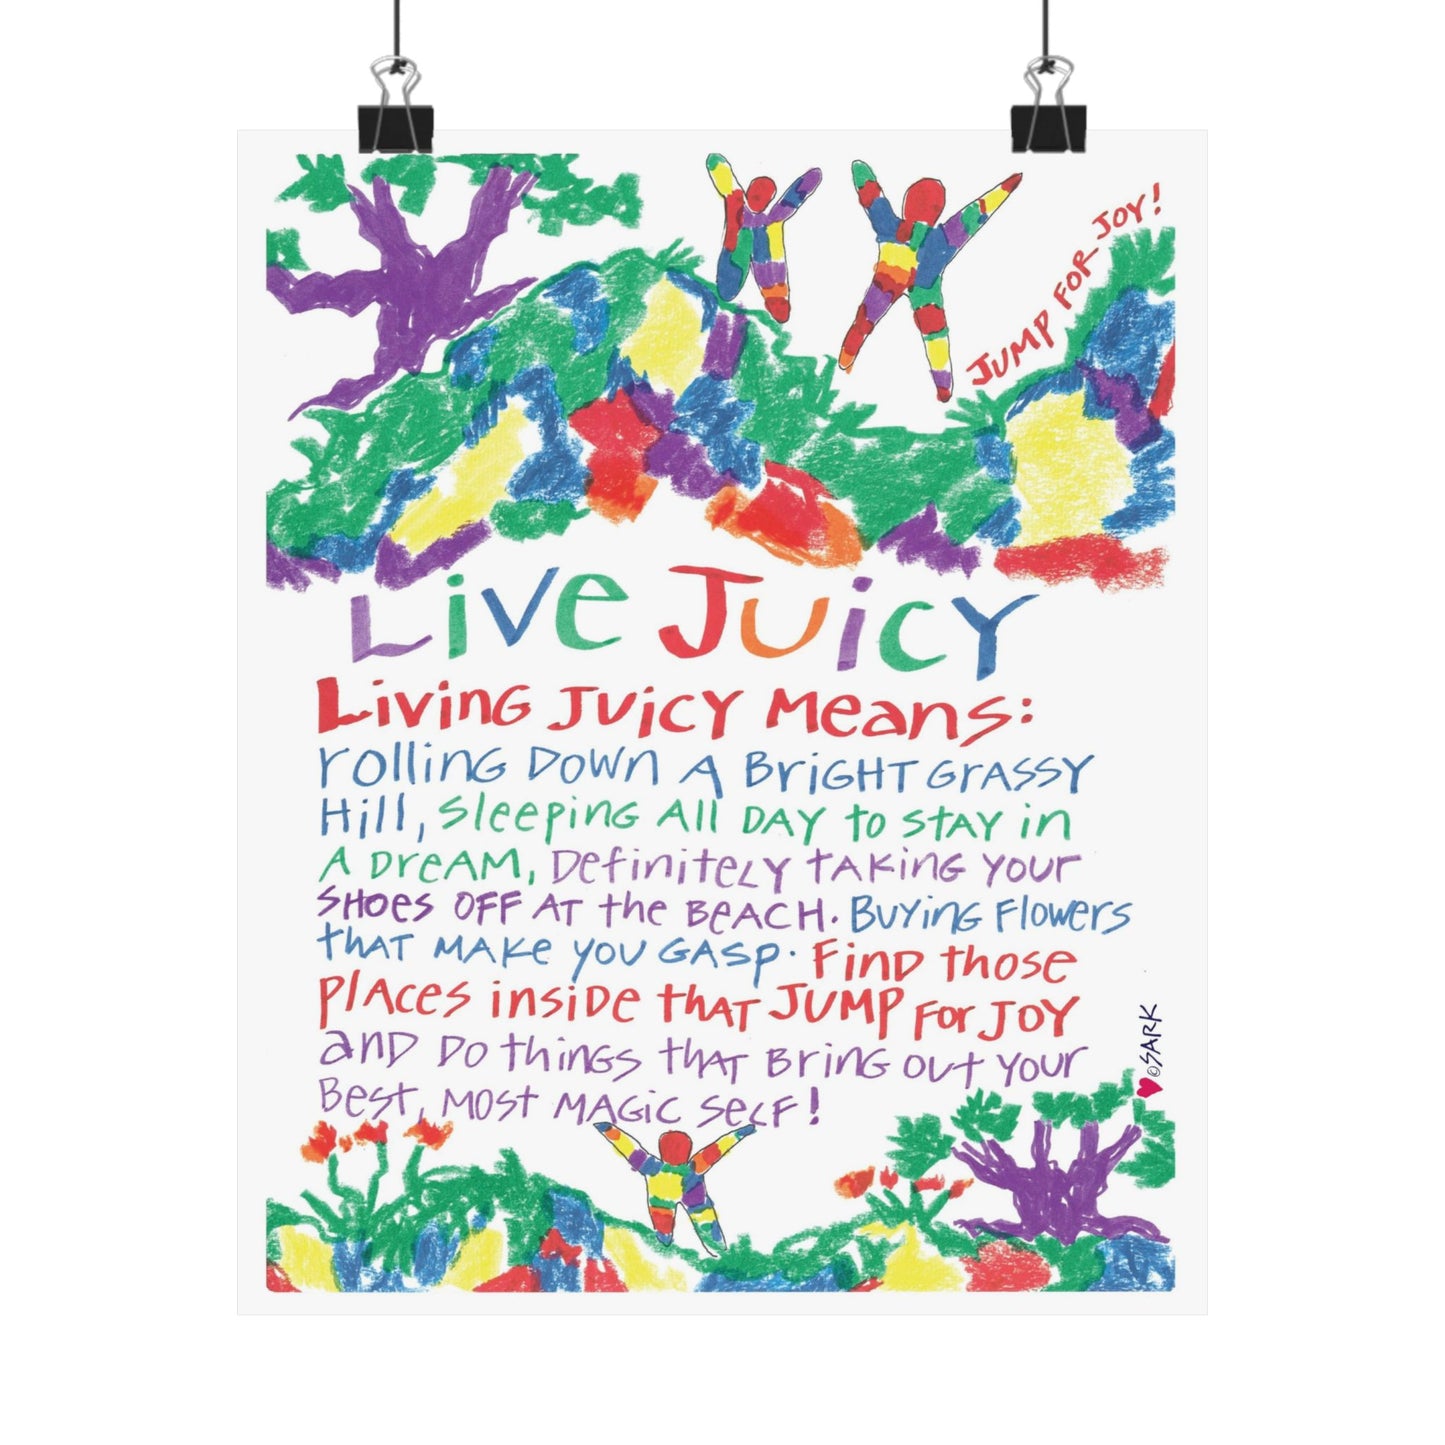 JUMP FOR JOY!
Live Juicy
Living Juicy Means:
rolling Down A Bright Grassy
Hill, sleeping All DAY to stay in
A DreAM, Definitely taking your
SHOES OFF AT the BEACH. Buying Flowers
that MAKe you GASp. Find those
plAces inside that JUMP For JOY
and Do things that Bring out your
Best, Most MAGic SelF!
©SARK